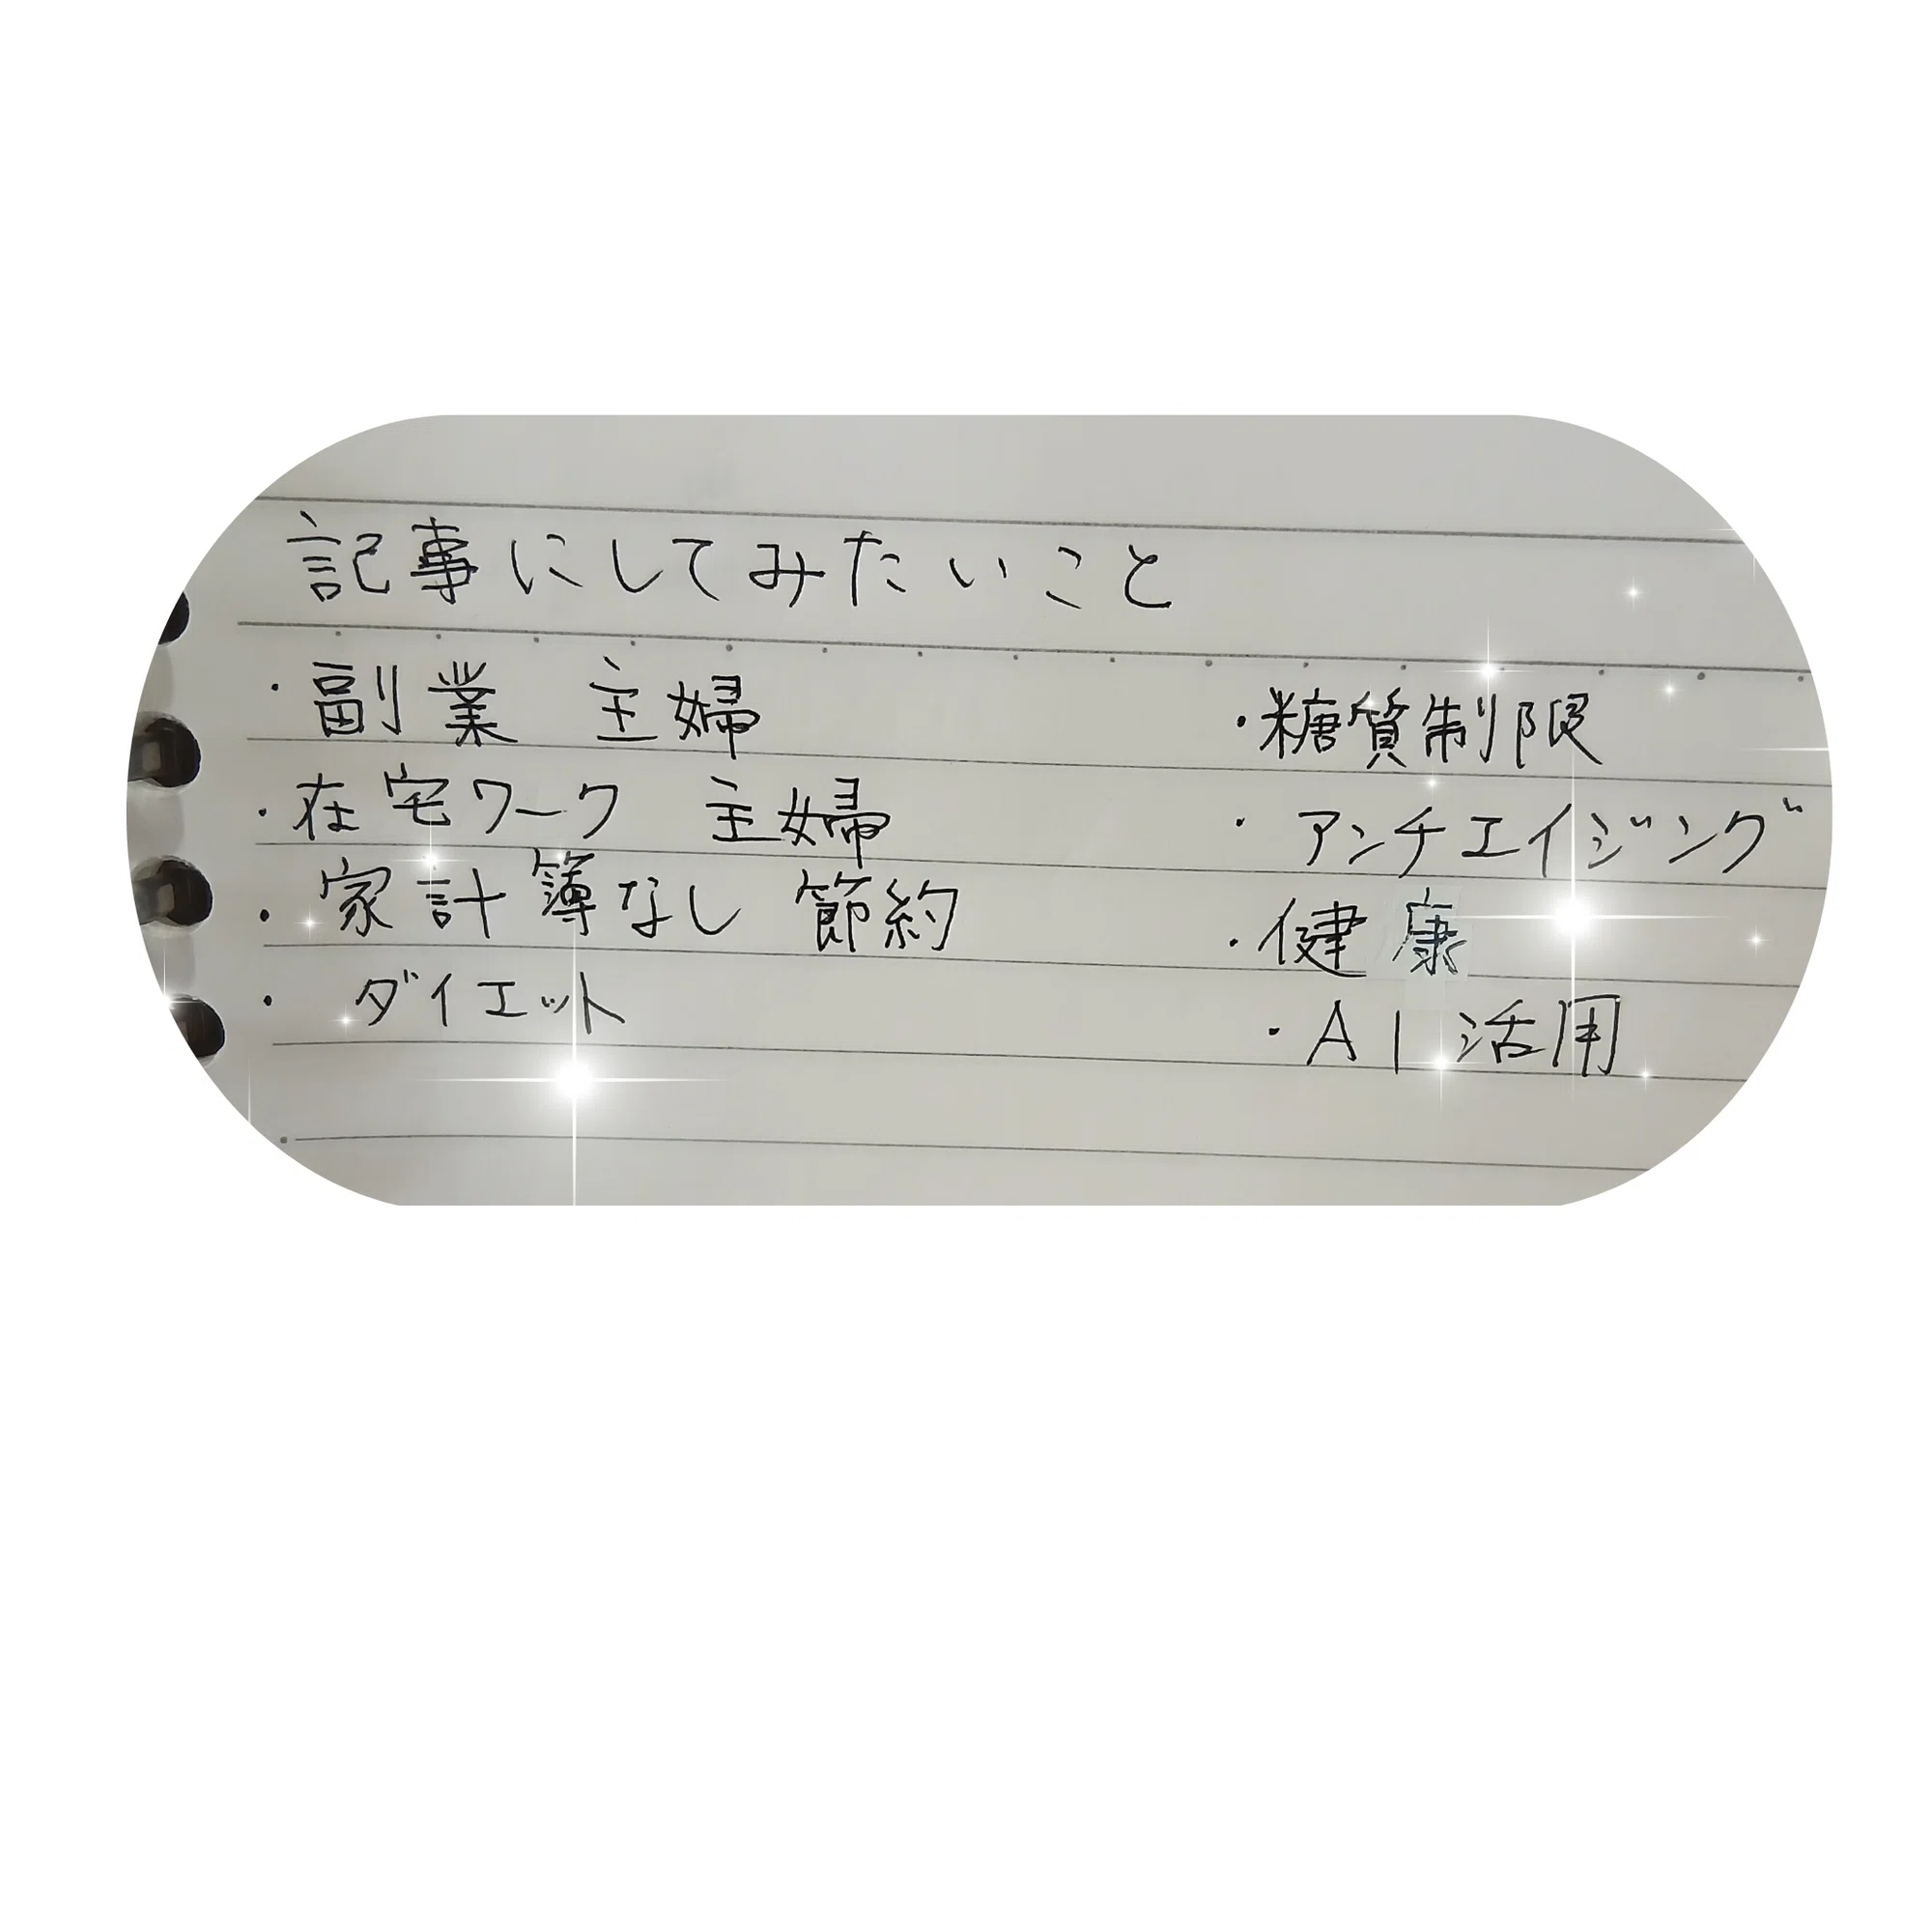 記事にしてみたいこと
・副業 主婦
・在宅ワーク 主婦
・家計簿なし 節約
・ダイエット
・糖質制限
・アンチエイジング
・健康
・AI活用